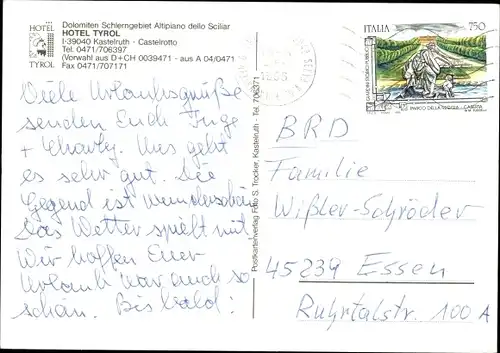 HOTEL
TYROL
Dolomiten Schlerngebiet Altipiano dello Sciliar
HOTEL TYROL
I-39040 Kastelruth - Castelrotto
Tel. 0471/706397
(Vorwahl aus D+CH 0039471 - aus A 04/0471
Fax 0471/707171
Viele Urlaubsgrüße
senden Euch Inge
+ Charly. Uns geht
es sehr gut. Die
Gegend ist wunderschön
Das Wetter spielt mit.
Wir hoffen Euer
Urlaub war auch so
schön. Bis bald!
Postkartenverlag Foto S. Trocker, Kastelruth - Tel. 706371
ITALIA 750
PARCO DELLA REGGIA - CASERTA
BRD
Familie
Wißler-Schröder
45239 Essen
Ruhrtalstr. 100 A